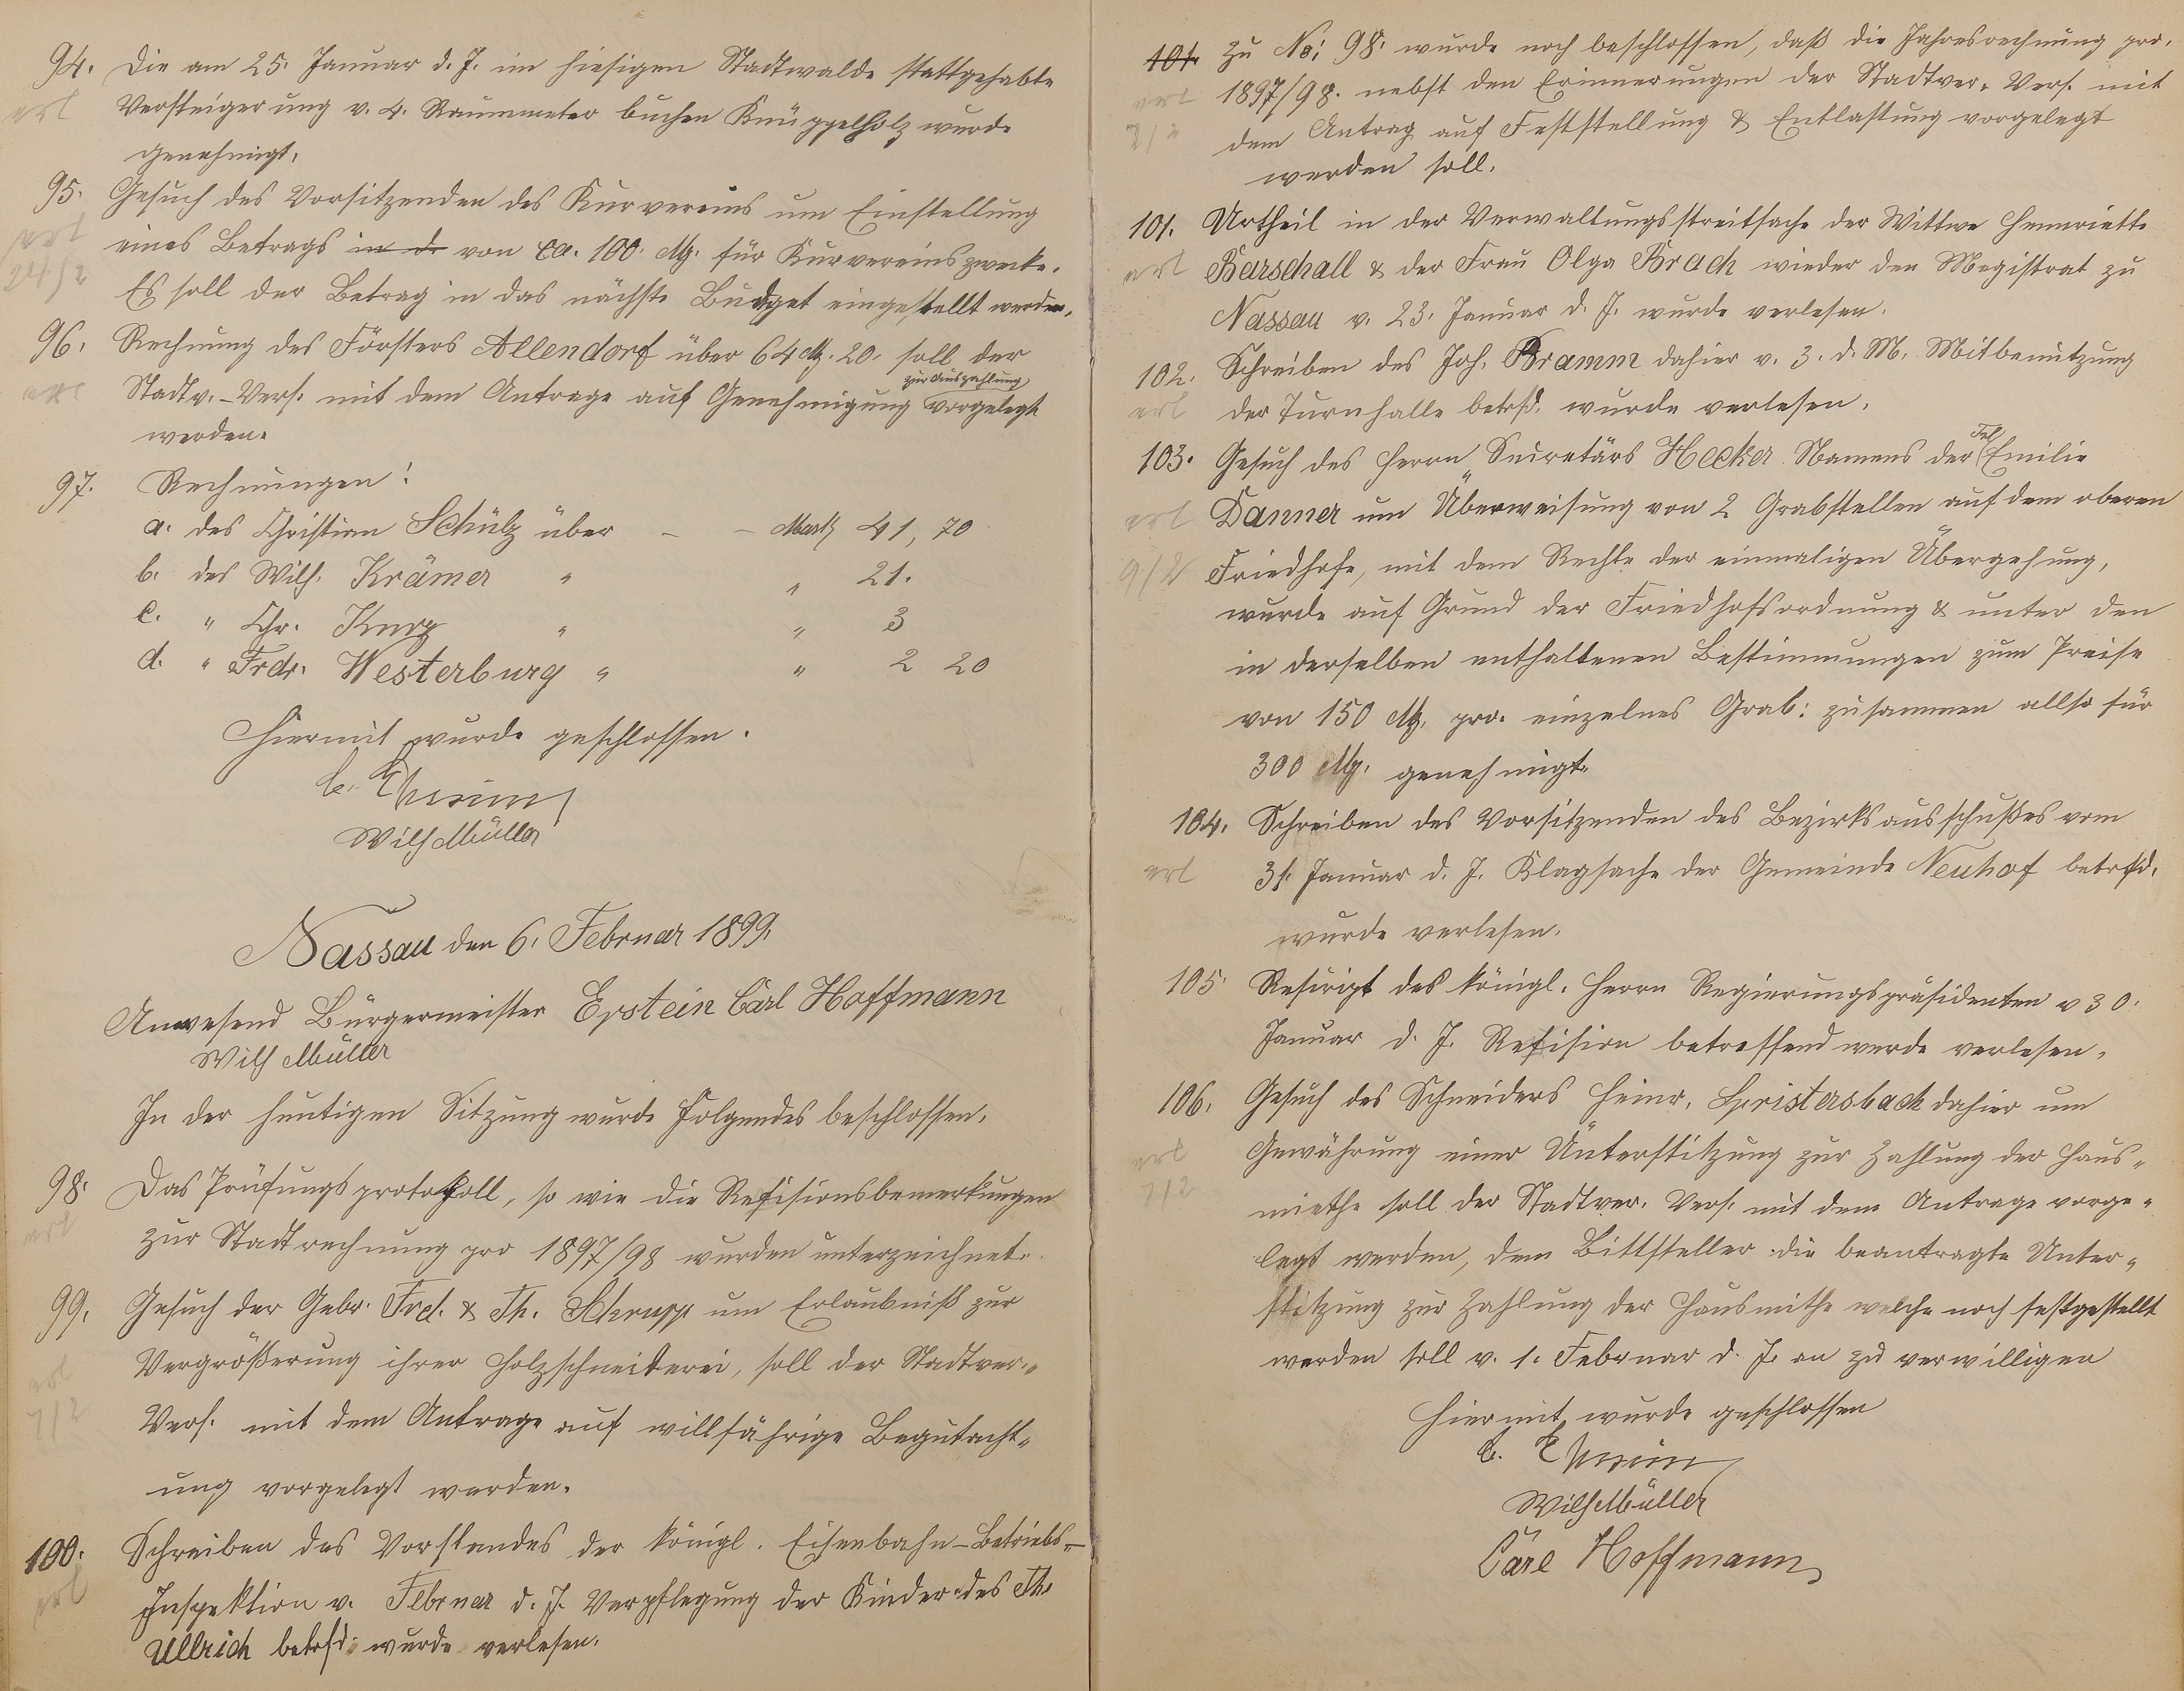 94. Die am 25. Januar d. J. im hiesigen Stadtwalde stattgehabte
erl
Versteigerung v. 4. Raummeter buchen Knüppelholz wurde
genehmigt.
95. Gesuch des Vorsitzenden des Kurvereins um Einstellung
erl
24/2
eines Betrags in d. von ca. 100. M. für Kurvereinszwecke.
Es soll der Betrag in das nächste Budget eingestellt werden.
96. Rechnung des Försters Allendorf über 64 M. 20. soll der
erl
zur Auszahlung
Stadtv.-Vers. mit dem Antrage auf Genehmigung vorgelegt
werden.
97. Rechnungen:
a. des Christian Schulz über — — Mark 41, 70
b. des Wilh. Krämer " " 21.
c. " Chr. Knoz " " 3
d. " Frdr. Westerburg " " 2 20
Hiermit wurde geschlossen.
Wilh Müller
Nassau den 6. Februar 1899.
Anwesend Bürgermeister Epstein Carl Hoffmann
Wilh Müller
In der heutigen Sitzung wurde folgendes beschlossen.
98. Das Prüfungsprotokoll, so wie die Refisionsbemerkungen
erl
zur Stadtrechnung pro 1897/98 wurden unterzeichnet.
99. Gesuch der Gebr. Frd. & Th. Schrupp um Erlaubniß zur
erl
7/2
Vergrößerung ihrer Holzschneiderei, soll der Stadtver.=
Vers. mit dem Antrage auf willfährige Begutacht=
ung vorgelegt werden.
100. Schreiben des Vorstandes der königl. Eisenbahn-Betriebs-
erl
Inspektion v. Februar d. J. Verpflegung der Kinder des Th.
Ullrich betrfd. wurde verlesen.
101. Zu No: 98. wurde noch beschlossen, daß die Jahresrechnung pro.
erl
8/2
1897/98. nebst den Erinnerungen der Stadtver. Vers. mit
dem Antrag auf Feststellung & Entlastung vorgelegt
werden soll.
101. Urtheil in der Verwaltungsstreitsache der Wittwe Henriette
erl
Barschall & der Frau Olga Brach wieder den Magistrat zu
Nassau v. 23. Januar d. J. wurde verlesen.
102. Schreiben des Joh. Bramm dahier v. 3. d. M. Mitbenutzung
erl
der Turnhalle betrfd. wurde verlesen.
103. Gesuch des Herrn Secretärs Hecker Namens der Frl Emilie
erl
9/2
Danner um Überweisung von 2 Grabstellen auf dem oberen
Friedhofe, mit dem Rechte der einmaligen Übergehung,
wurde auf Grund der Friedhofsordnung & unter den
in derselben enthaltenen Bestimmungen zum Preise
von 150 M. pro. einzelnes Grab: zusammen allso für
300 M. genehmigt.
104. Schreiben des Vorsitzenden des Bezirksausschußes vom
erl
31. Januar d. J. Klagsache der Gemeinde Neuhof betrfd.
wurde verlesen.
105. Rescript des königl. Herrn Regierungspräsidenten v 30.
Januar d. J. Refision betreffend wurde verlesen.
106. Gesuch des Schneiders Heinr. Spristersbach dahier um
erl
7/2
Gewährung einer Unterstützung zur Zahlung der Haus=
miethe soll der Stadtver. Vers. mit dem Antrage vorge=
legt werden, dem Bittsteller die beantragte Unter=
stützung zur Zahlung der Hausmithe welche noch festgestellt
werden soll v. 1. Februar d. J. an zu verwilligen
Hiermit wurde geschlossen
Wilh Müller
Carl Hoffmann